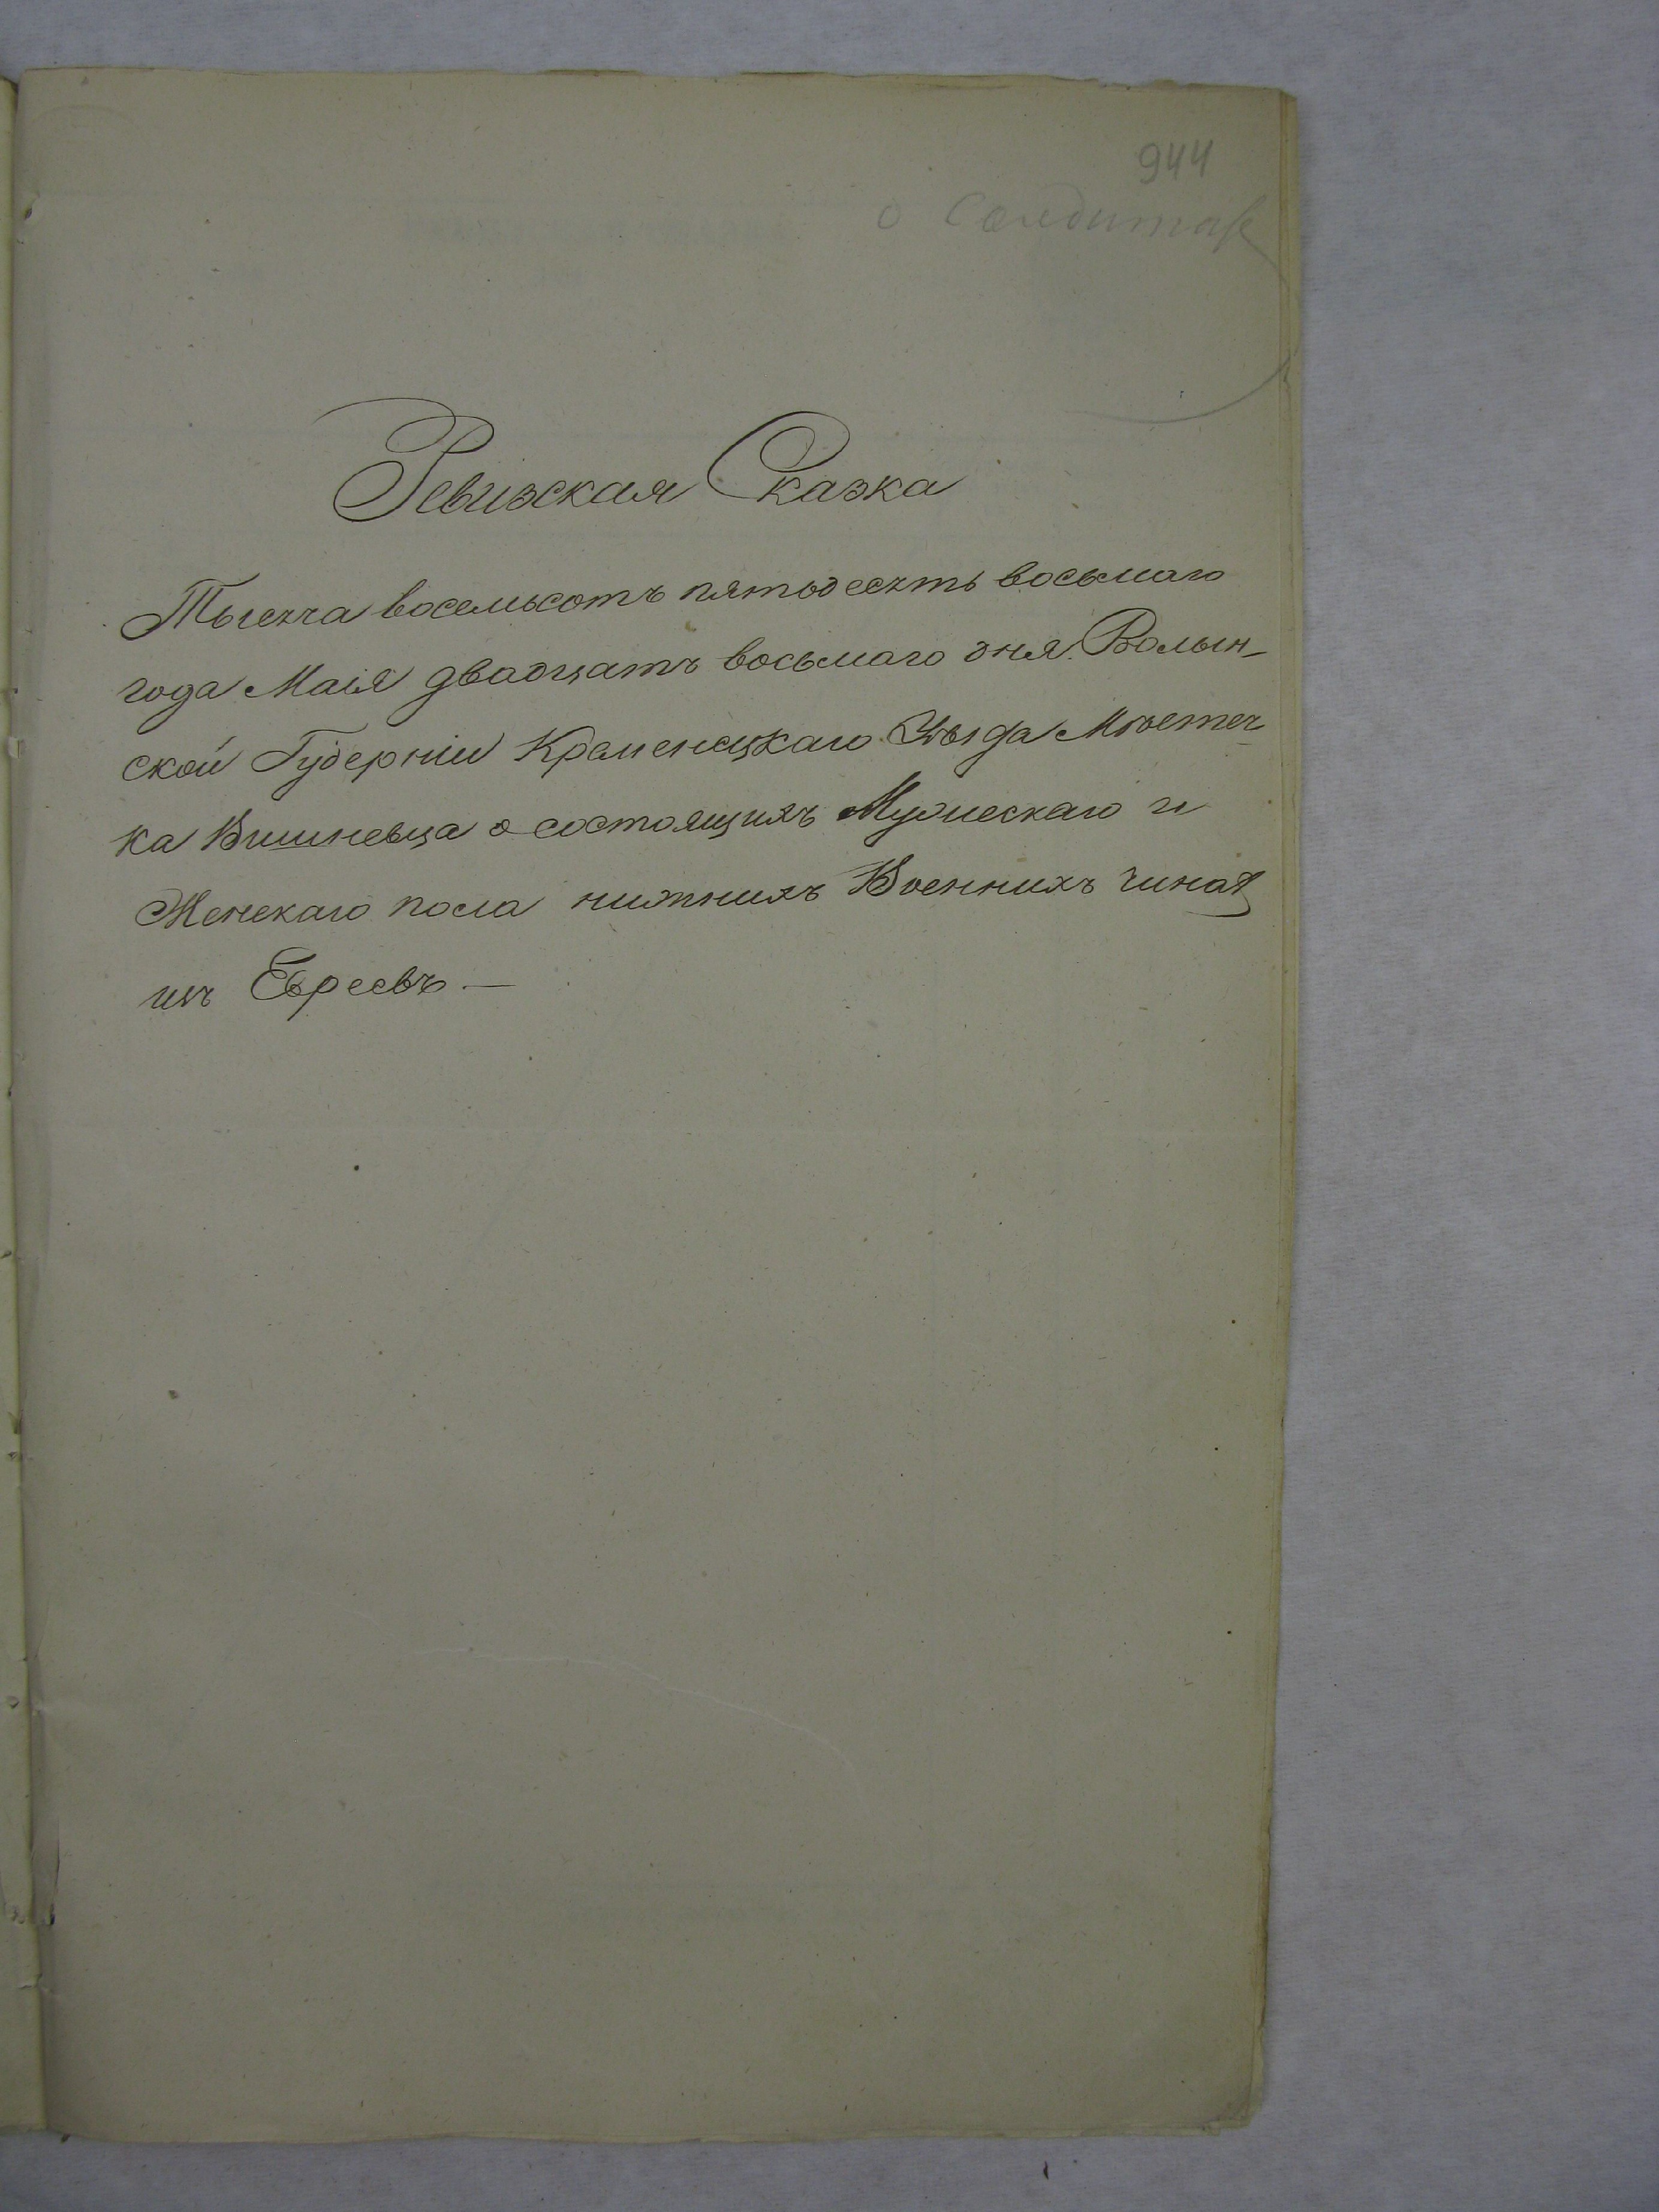 944
о Солдатах
Ревизская Сказка
Тысяча восемьсотъ пятьодесятъ восьмаго
года Маія двадцать восьмаго дня Волын-
ской Губерніи Кременецкаго Уѣзда Мѣстеч-
ка Вишневца о состоящихъ Мужескаго и
Женскаго пола нижнихъ Военнихъ Чинахъ
изъ Евреевъ.—